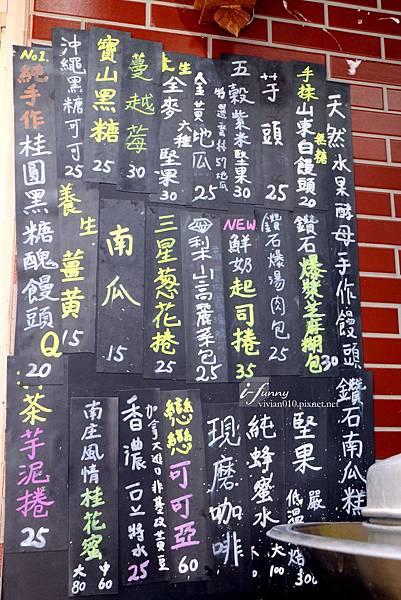 天然水果酵母手作饅頭
鑽石南瓜糕
手揉山東白饅頭 無糖 20
芋頭 25
五穀紫米堅果 30
金黃地瓜 25
特選臺農57地瓜
養生全麥六種堅果 30
蔓越莓 30
寶山黑糖 25
沖繩黑糖可可 25
No1.
純手作桂圓黑糖醜饅頭 20
鑽石爆漿芝麻糊包 30
鑽石爆湯肉包 25
NEW
鮮奶起司捲 35
梨山高麗菜包 25
三星蔥花捲 25
南瓜 15
養生薑黃 15
Q
茶芋泥捲 25
堅果
低溫 300
純蜂蜜水 大100
現磨咖啡
戀戀可可亞 60
香濃豆漿 25
加拿大進口非基改黃豆
南庄風情桂花蜜 大80 中60
i-funny
vivian010.pixnet.net